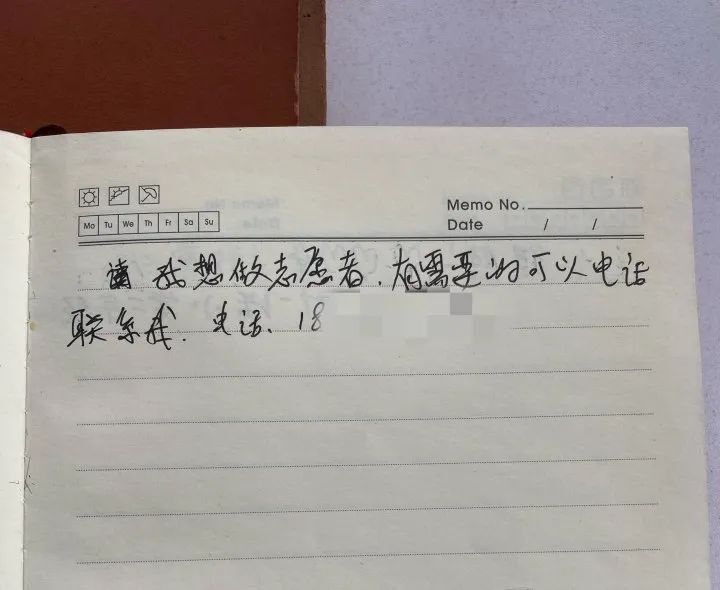 Memo No.
Mo Tu We Th Fr Sa Su
Date / /
我想做志愿者.有需要的可以电话
联系我.电话.18